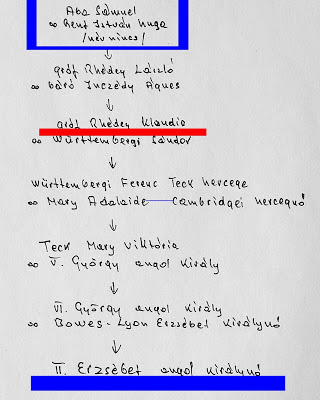 Aba Sámuel
∞ Szent István húga
/név nincs/
↓
gróf Rhédey László
∞ báró Inczédy Ágnes
↓
gróf Rhédey Klaudia
∞ Württembergi Sándor
↓
Württembergi Ferenc Teck hercege
∞ Mary Adelaide — Cambridgei hercegnő
↓
Teck Mary Viktória
∞ V. György angol király
↓
VI. György angol király
∞ Bowes-Lyon Erzsébet királynő
↓
II. Erzsébet angol királynő